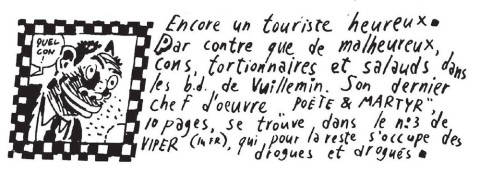 QUEL
CON
Encore un touriste heureux.
Par contre que de malheureux,
cons, tortionnaires et salauds dans
les b.d. de Vuillemin. Son dernier
chef d'oeuvre "POÈTE & MARTYR",
10 pages, se trouve dans le n:3 de
VIPER (14FR), qui pour la reste s'occupe des
drogues et drogués.